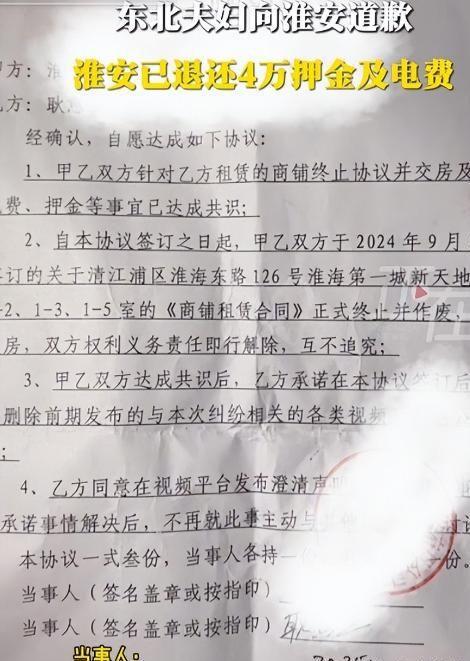 东北夫妇向淮安道歉
淮安已退还4万押金及电费
方：淮
方：耿
经确认，自愿达成如下协议：
1、甲乙双方针对乙方租赁的商铺终止协议并交房及
费、押金等事宜已达成共识；
2、自本协议签订之日起，甲乙双方于2024年9月
签订的关于清江浦区淮海东路126号淮海第一城新天地
-2、1-3、1-5室的《商铺租赁合同》正式终止并作废，
房，双方权利义务责任即行解除，互不追究；
3、甲乙双方达成共识后，乙方承诺在本协议签订后
删除前期发布的与本次纠纷相关的各类视频
；
4、乙方同意在视频平台发布澄清声
承诺事情解决后，不再就此事主动与其他
本协议一式叁份，当事人各持一份
份。
当事人（签名盖章或按指印）
当事人（签名盖章或按指印） 耿
当事人：